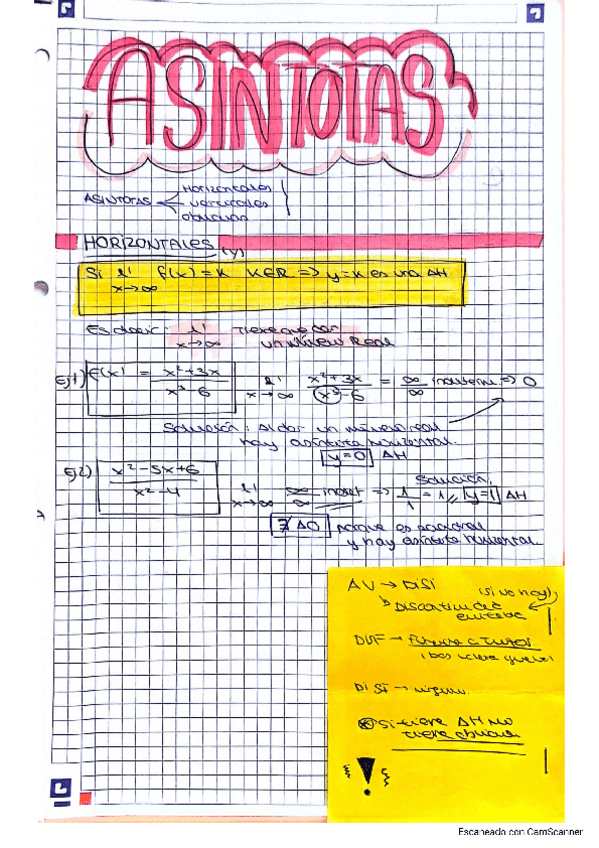 ASINTOTAS
ASINTOTAS
Horizontales
verticales
oblicuas
HORIZONTALES (y)
Si lí f(x) = K K∈R => y=K es una AH
x→∞
Es decir: lí Tiene que dar
x→∞ un número Real
Ej1) f(x) = x²+3x / x³-6 lí x→∞ x²+3x / x³-6 = ∞/∞ indeterm. => 0
Solución: Al dar un número real
hay asíntota horizontal.
y=0 AH
Ej2) x²-5x+6 / x²-4 lí x→∞ ∞/∞ indet => 1/1 = 1 // y=1 AH
Solución.
∄ AO porque es racional
y hay asíntota horizontal.
AV → DISI (si no hay)
Discontinuidad
evitable
→
DISI → ningun
* Si tiene AH no
tiene oblicua
!
Escaneado con CamScanner